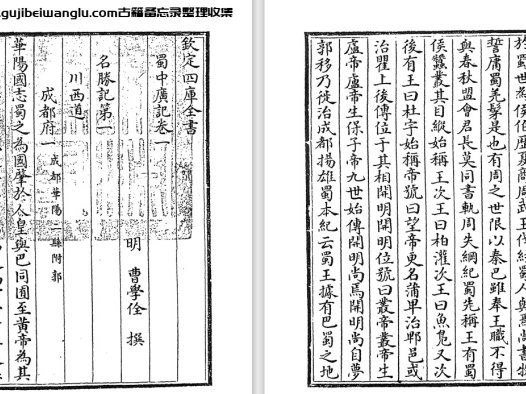 .gujibeiwanglu.com古籍备忘录整理收集
欽定四庫全書
蜀中廣記卷一
明 曹學佺 撰
名勝記第一
川西道
成都府一 成都華陽二縣附郭
華陽國志蜀之為國肇於人皇與巴同囿至黄帝為其
於蜀世為侯伯歷夏商周武王伐紂蜀人與焉尚書牧
誓庸蜀羌髳是也有周之世限以秦巴雖奉王職不得
與春秋盟會君長莫同書軌周失綱紀蜀先稱王有蜀
侯蠶叢其目縱始稱王次王曰柏灌次王曰魚鳧又次
後有王曰杜宇始稱帝號曰望帝更名蒲卑治郫邑或
治瞿上後傳位于其相開明開明位號曰叢帝叢帝生
盧帝盧帝生保子帝九世始傳開明尚焉開明尚自夢
郭移乃徙治成都揚雄蜀本紀云蜀王據有巴蜀之地